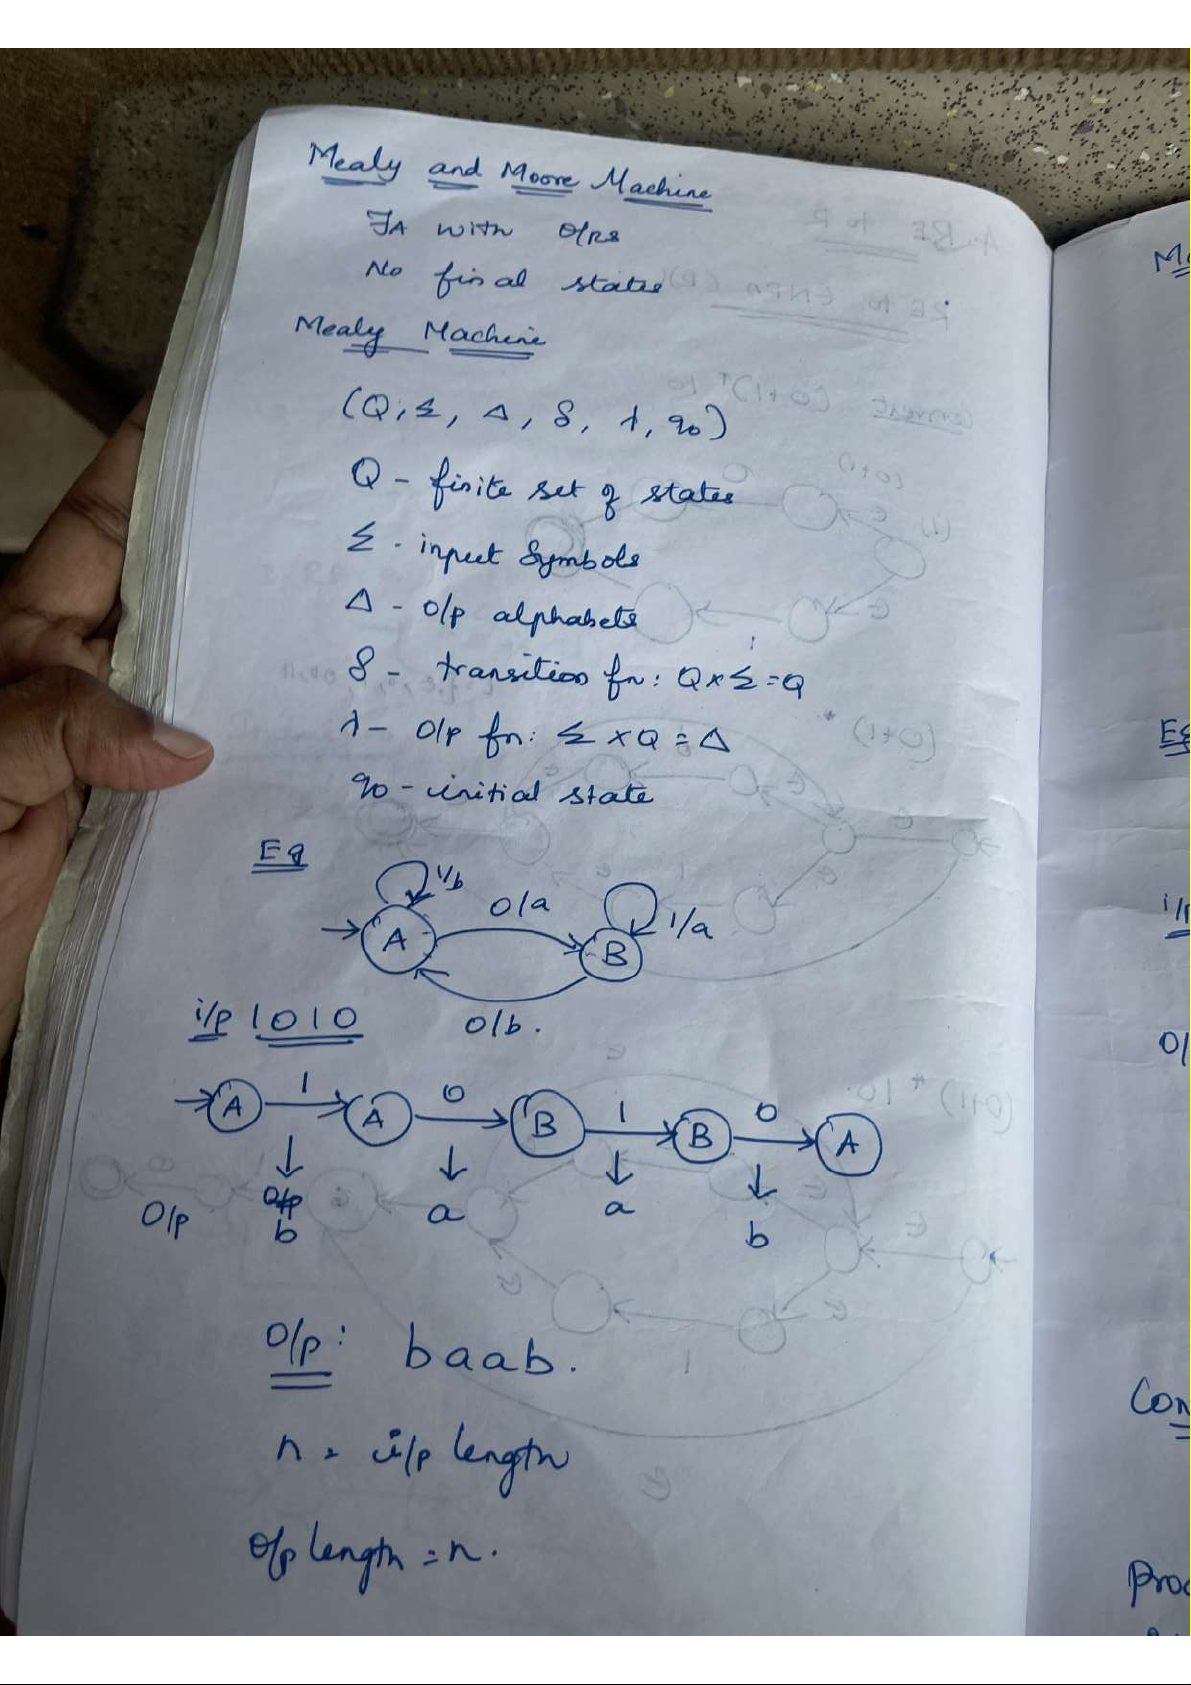 Mealy and Moore Machine
FA with O/Ps
No final states
Mealy Machine
(Q, Σ, Δ, δ, λ, q0)
Q - finite set of states
Σ - input symbols
Δ - o/p alphabets
δ - transition fn: Q x Σ = Q
λ - o/p fn: Σ x Q = Δ
q0 - initial state
Eg
1/b
0/a
1/a
A
B
0/b.
i/p 1010
1 0 1 0
A A B B A
o/p
O/p b a a b
O/p: baab.
n = i/p length
o/p length = n.
i/p